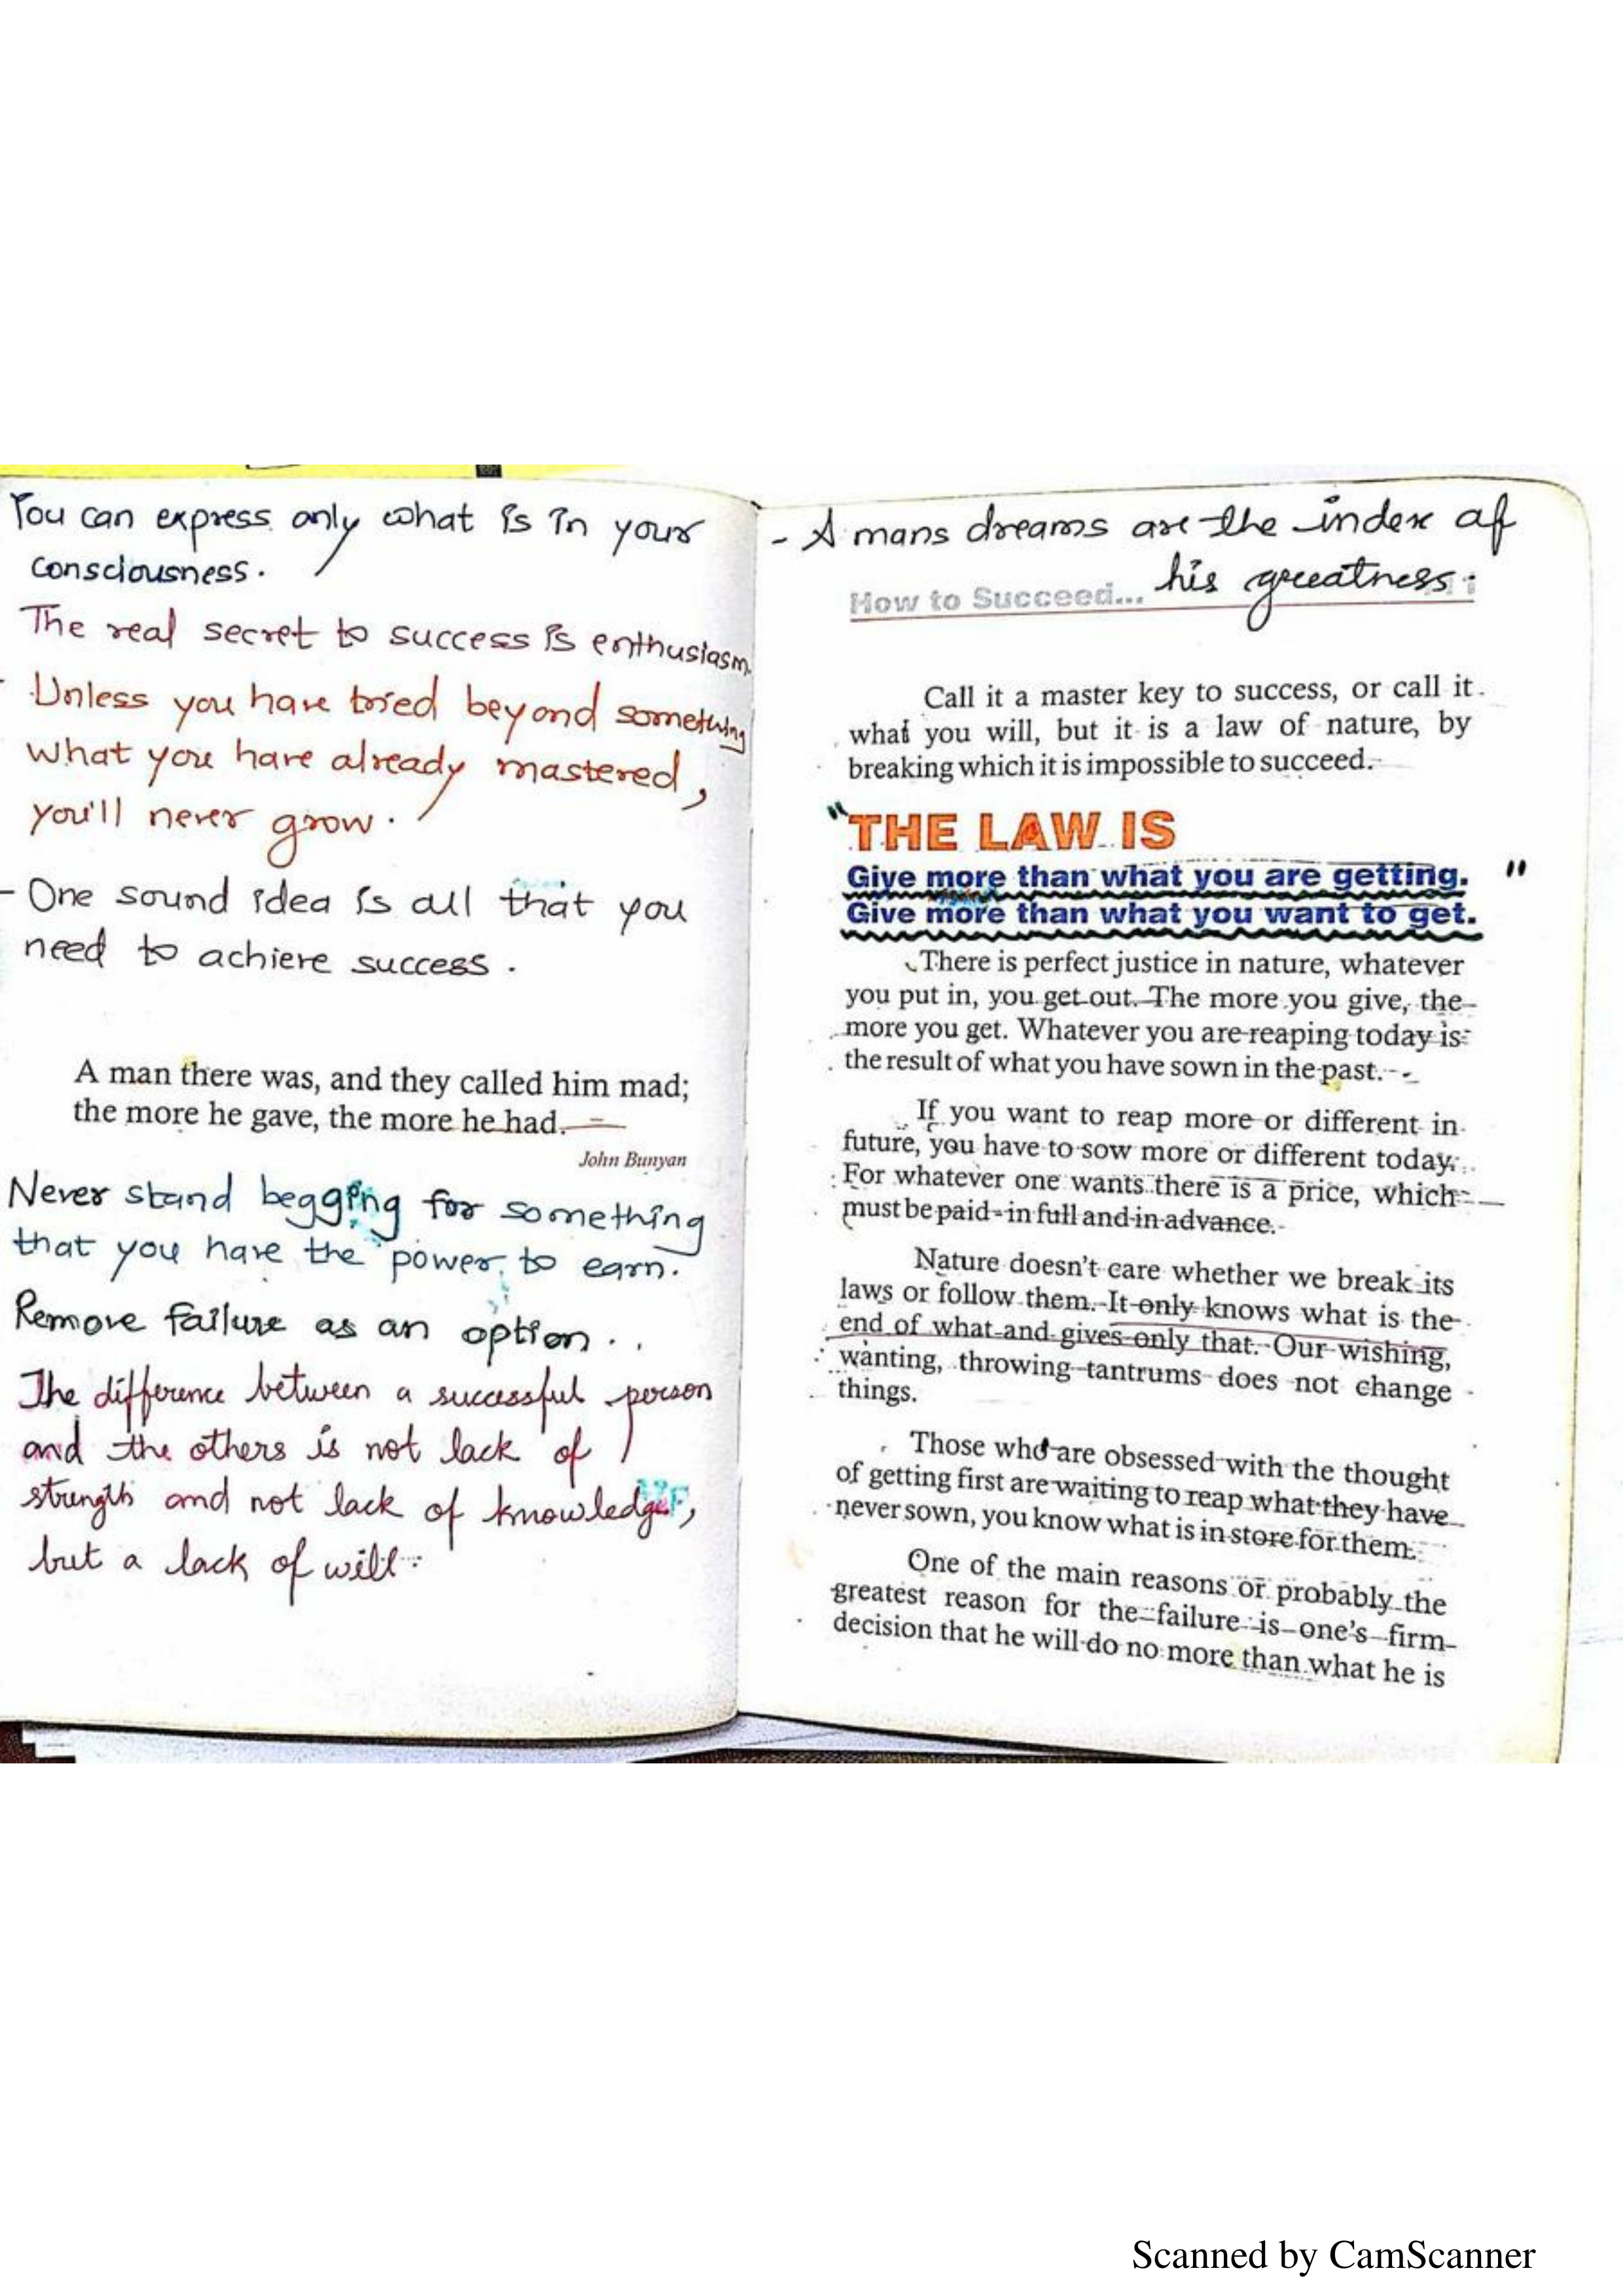 You can express only what is in your
consciousness.
The real secret to success is enthusiasm.
- Unless you have tried beyond something
what you have already mastered,
you'll never grow.
- One sound idea is all that you
need to achieve success.
A man there was, and they called him mad;
the more he gave, the more he had.
John Bunyan
Never stand begging for something
that you have the power to earn.
Remove failure as an option..
The difference between a successful person
and the others is not lack of
strength and not lack of knowledge,
but a lack of will.
- A mans dreams are the index of
his greatness.
How to Succeed...
Call it a master key to success, or call it
what you will, but it is a law of nature, by
breaking which it is impossible to succeed.
"THE LAW IS
Give more than what you are getting. "
Give more than what you want to get.
There is perfect justice in nature, whatever
you put in, you get out. The more you give, the
more you get. Whatever you are reaping today is
the result of what you have sown in the past.
If you want to reap more or different in
future, you have to sow more or different today.
For whatever one wants there is a price, which
must be paid - in full and in advance.
Nature doesn't care whether we break its
laws or follow them. It only knows what is the
end of what and gives only that. Our wishing,
wanting, throwing tantrums does not change
things.
Those who are obsessed with the thought
of getting first are waiting to reap what they have
never sown, you know what is in store for them.
One of the main reasons or probably the
greatest reason for the failure is one's firm
decision that he will do no more than what he is
Scanned by CamScanner